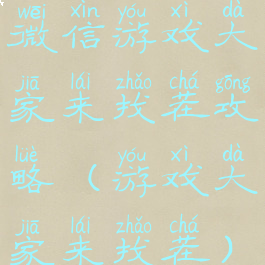 wēi xìn yóu xì dà
微信游戏大
jiā lái zhǎo chá gōng
家来找茬攻
lüè yóu xì dà
略（游戏大
jiā lái zhǎo chá
家来找茬）